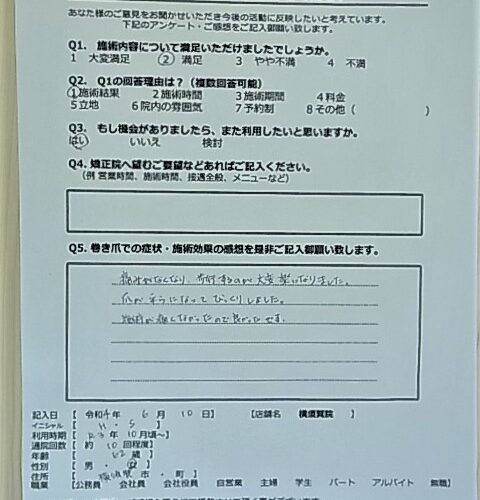 あなた様のご意見をお聞かせいただき今後の活動に反映したいと考えています。
下記のアンケート・ご感想をご記入御願い致します。
Q1. 施術内容について満足いただけましたでしょうか。
1 大変満足 ② 満足 3 やや不満 4 不満
Q2. Q1の回答理由は？（複数回答可能）
①施術結果 2施術時間 3施術期間 4料金
5立地 6院内の雰囲気 7予約制 8その他（ ）
Q3. もし機会がありましたら、また利用したいと思いますか。
はい いいえ 検討
Q4. 矯正院へ望むご要望などあればご記入ください。
（例 営業時間、施術時間、接遇全般、メニューなど）
Q5. 巻き爪での症状・施術効果の感想を是非ご記入御願い致します。
痛みがなくなり、歩行するのが大変楽になりました。
爪が平らになってびっくりしました。
施術が痛くなかったので良かったです。
記入日 【 令和4年 6月 10日】 【店舗名 横須賀院 】
イニシャル 【 H ・ S 】
利用時期 【 R3年 10月頃～】
通院回数 【 約 10 回程度】
年齢 【 62 歳 】
性別 【 男 ・ 女 】
住所 【 市 ・ 町 】
職業 【公務員 会社員 会社役員 自営業 主婦 学生 パート アルバイト 無職】